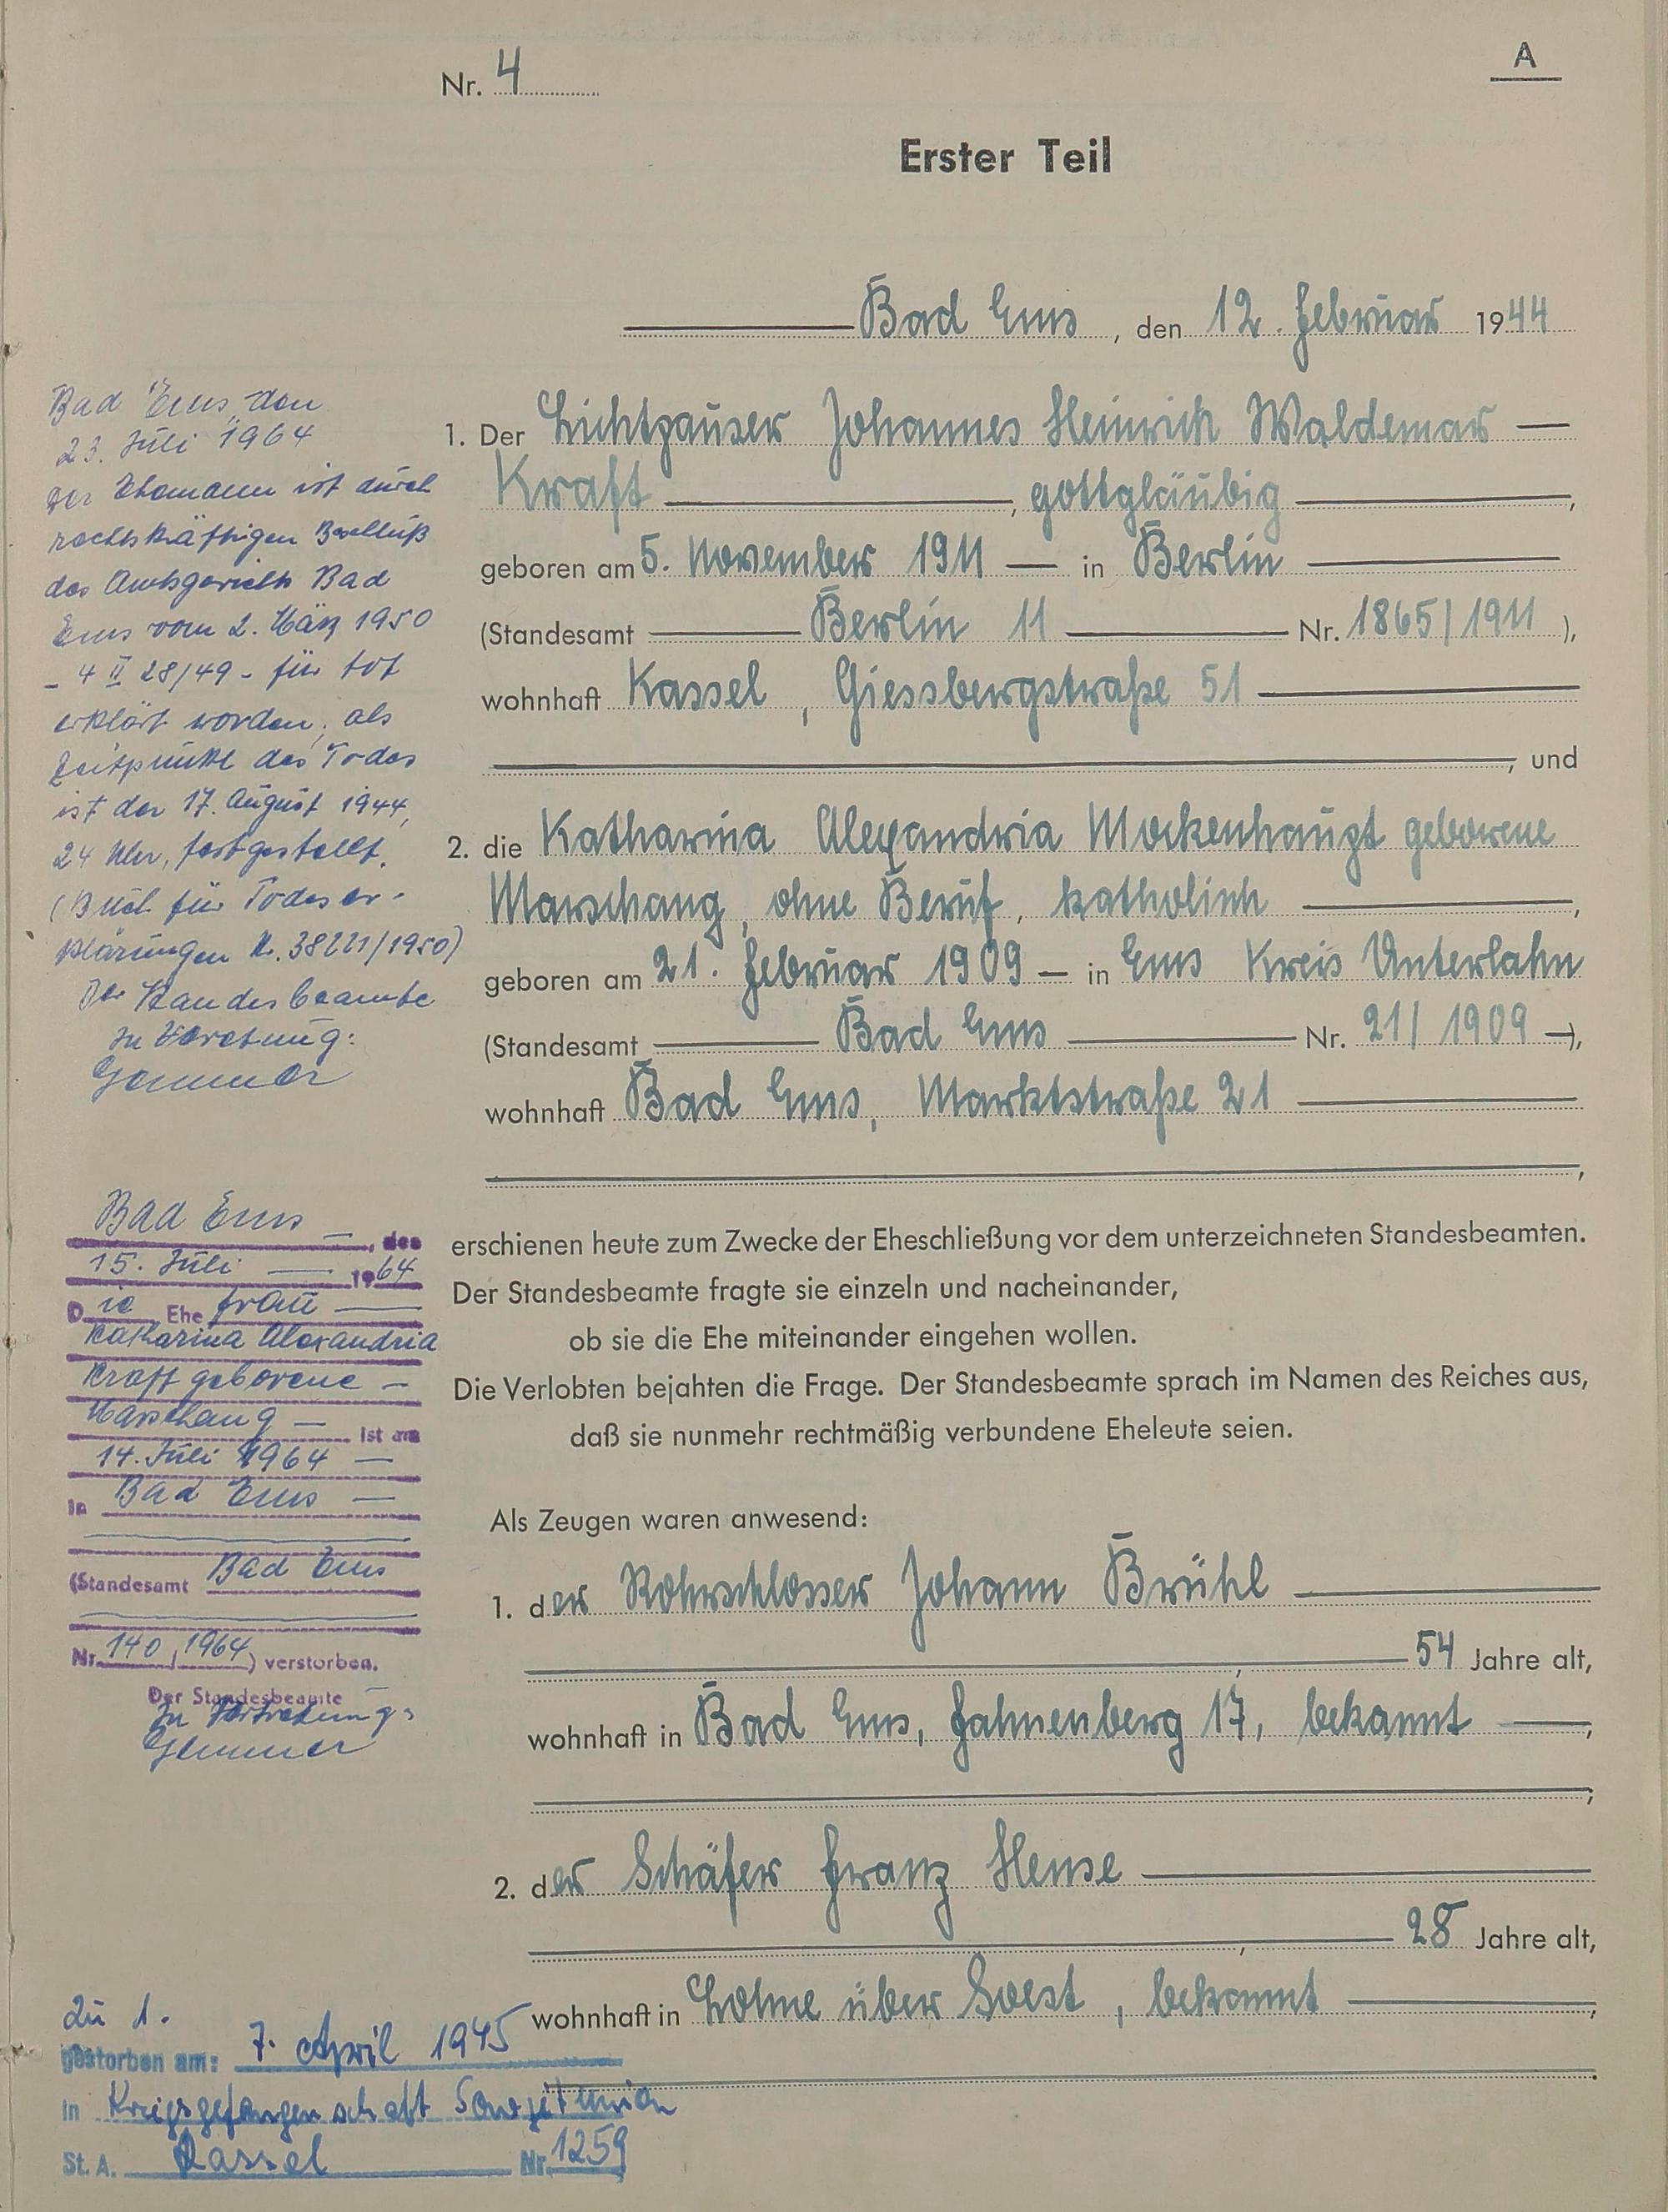 Nr. 4
A
Erster Teil
Bad Ems, den 12. Februar 1944
1. Der Lichtpauser Johannes Heinrich Waldemar —
Kraft, gottgläubig,
geboren am 5. November 1911 — in Berlin
(Standesamt Berlin 11 Nr. 1865/1911),
wohnhaft Kassel, Giessbergstraße 51
, und
2. die Katharina Alexandria Mockenhaupt geborene
Marschang, ohne Beruf, katholisch,
geboren am 21. Februar 1909 — in Ems Kreis Unterlahn
(Standesamt Bad Ems Nr. 21/1909 —),
wohnhaft Bad Ems, Marktstraße 21
,
erschienen heute zum Zwecke der Eheschließung vor dem unterzeichneten Standesbeamten.
Der Standesbeamte fragte sie einzeln und nacheinander,
ob sie die Ehe miteinander eingehen wollen.
Die Verlobten bejahten die Frage. Der Standesbeamte sprach im Namen des Reiches aus,
daß sie nunmehr rechtmäßig verbundene Eheleute seien.
Als Zeugen waren anwesend:
1. der Rohrschlosser Johann Brühl
, 54 Jahre alt,
wohnhaft in Bad Ems, Fahnenberg 17, bekannt —,
;
2. der Schäfer Franz Hense
, 28 Jahre alt,
wohnhaft in Lohne über Soest, bekannt,
.
Bad Ems, den
23. Juli 1964
Der Ehemann ist durch
rechtskräftigen Beschluß
des Amtsgerichts Bad
Ems vom 2. März 1950
- 4 II 28/49 - für tot
erklärt worden, als
Zeitpunkt des Todes
ist der 17. August 1944,
24 Uhr, festgestellt.
(Buch für Todeser-
klärungen Nr. 38221/1950)
Der Standesbeamte
In Vertretung:
Bad Ems —, den
15. Juli — 1964
Die Ehefrau —
Katharina Alexandria
Kraft geborene —
Marschang — ist am
14. Juli 1964 —
in Bad Ems —
(Standesamt Bad Ems
Nr. 140/1964) verstorben.
Der Standesbeamte
In Vertretung:
Zu 1.
gestorben am: 7. April 1945
in Kriegsgefangenschaft Sowjetunion
St. A. Kassel Nr. 1259